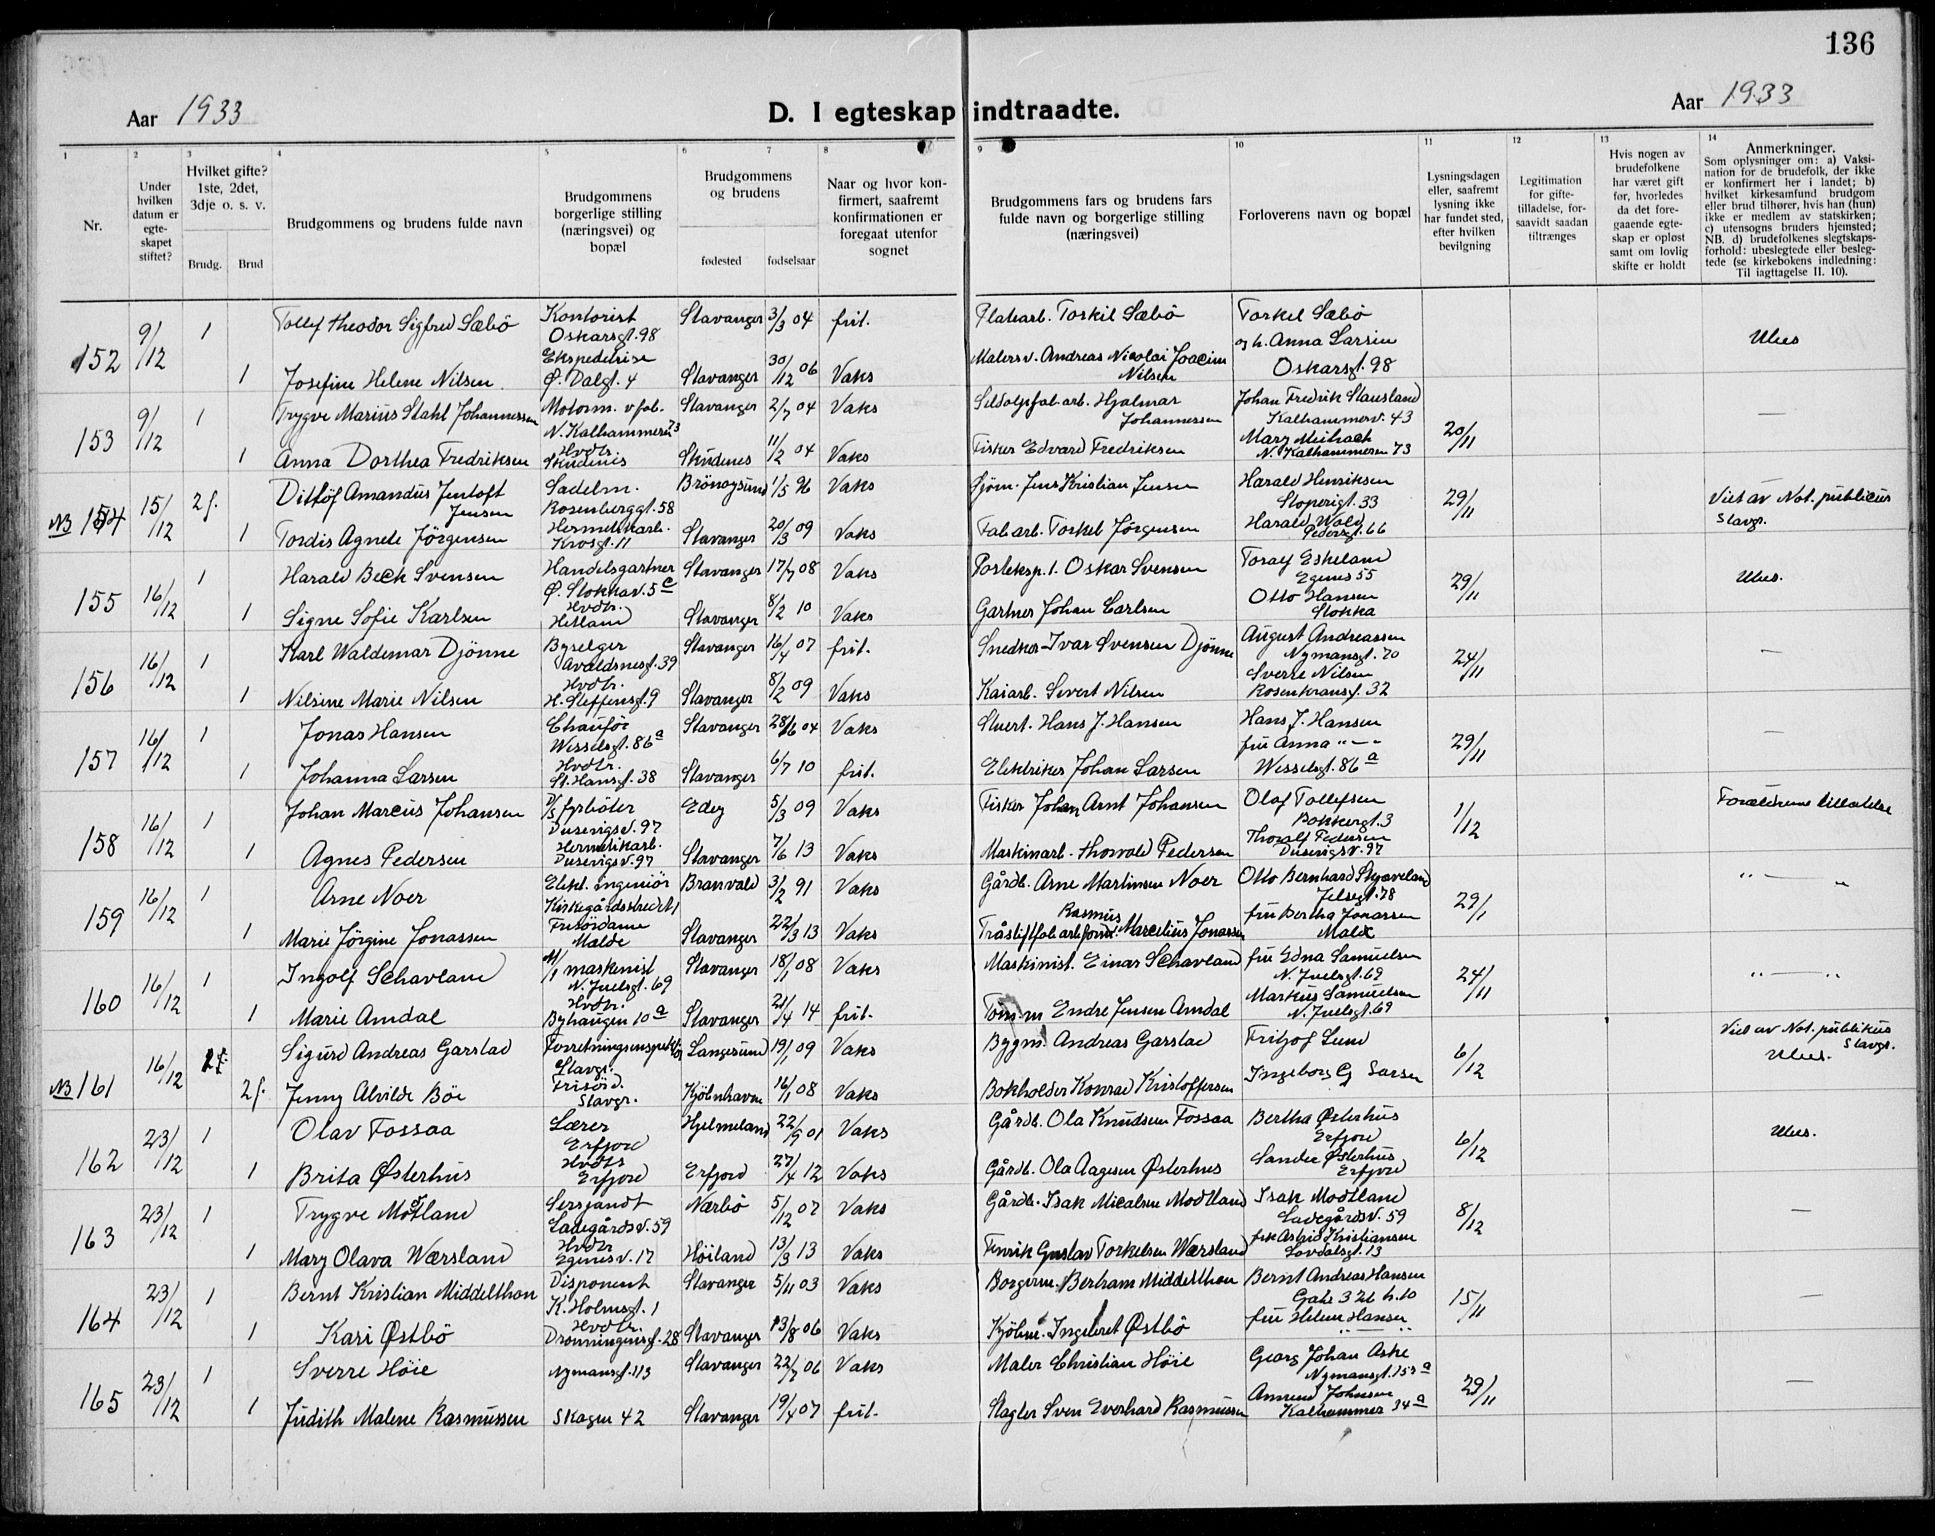 136
Aar 1933
D. I egteskap indtraadte.
Aar 1933
1
2
3
4
5
6
7
8
9
10
11
12
13
14
Nr.
Under
hvilken
datum er
egte-
skapet
stiftet?
Hvilket gifte?
1ste, 2det,
3dje o. s. v.
Brudg.
Brud
Brudgommens og brudens fulde navn
Brudgommens
borgerlige stilling
(næringsvei) og
bopæl
Brudgommens
og brudens
fødested
fødselsaar
Naar og hvor kon-
firmert, saafremt
konfirmationen er
foregaat utenfor
sognet
Brudgommens fars og brudens fars
fulde navn og borgerlige stilling
(næringsvei)
Forloverens navn og bopæl
Lysningsdagen
eller, saafremt
lysning ikke
har fundet sted,
efter hvilken
bevilgning
Legitimation
for gifte-
tilladelse, for-
saavidt saadan
tiltrænges
Hvis nogen av
brudefolkene
har været gift
før, hvorledes
da det fore-
gaaende egte-
skap er opløst
samt om lovlig
skifte er holdt
Anmerkninger.
Som oplysninger om: a) Vaksi-
nation for de brudefolk, der ikke
er konfirmert her i landet; b)
hvilket kirkesamfund brudgom
eller brud tilhører, hvis han (hun)
ikke er medlem av statskirken;
c) utensogns bruders hjemsted;
NB. d) brudefolkenes slegtskaps-
forhold: ubeslegtede eller besleg-
tede (se kirkebokens indledning:
Til iagttagelse II. 10).
152 9/12 1 Tollef Theodor Sigfred Sæbö Kontorist Oskarsgt. 98 Stavanger 3/3 04 frit. Platearb. Torkil Sæbö Torkel Sæbö
og h. Anna Larsen Ubes
1 Josefine Helene Nilsen Ekspeditrise Ø. Dalgt. 4 Stavanger 30/12 06 Vaks Malersv. Andreas Nicolai Joacim Nilsen Oskarsgt. 98
153 9/12 1 Trygve Marius Stahl Johannessen Motorm. v fab. N. Kalhammeren 73 Stavanger 2/7 04 Vaks Sildoljefab.arb. Hjalmar Johannessen Johan Fredrik Stausland Kalhammerv. 43 20/11 —
1 Anna Dorthea Fredriksen Hvdtr. Skudenes Skudenes 11/2 04 Vaks Fisker Edvard Fredriksen Mary N. Kalhammeren 73
NB 154 15/12 2 f. Dittlöf Amandus Jentoft Jensen Sadelm. Rosenberggt. 58 Brönøysund 1/5 96 Vaks Sjöm. Jens Kristian Jensen Harald Henriksen Støperigt. 33 29/11 Viet av Not. publicus Stavgr.
1 Tordis Agnete Jörgensen Hermetikarb. Krosgt. 11 Stavanger 20/3 09 Vaks Fab.arb. Torkel Jørgensen Harald Wold Pedersgt. 66
155 16/12 1 Harald Beck Svensen Handelsgartner Ø. Stokkav. 5 c Stavanger 17/7 08 Vaks Posteksp. 1. Oskar Svensen Toralf Eskeland Egenes 55 29/11 Ubes.
1 Signe Sofie Karlsen Hvdtr. Hetland Stavanger 8/2 10 Vaks Gartner Johan Carlsen Otto Hansen Stokka
156 16/12 1 Karl Waldemar Djönne Byselger Avaldsnesgt. 39 Stavanger 16/4 07 frit. Snedker Ivar Svensen Djönne August Andreassen Nymansgt. 70 24/11 —
1 Nilsine Marie Nilsen Hvdtr. H. Steffensgt. 9 Stavanger 8/2 09 Vaks Kaiarb. Sivert Nilsen Sverre Nilsen Rosenkransgt. 32
157 16/12 1 Jonas Hansen Chauför Wesselsgt. 86 a Stavanger 28/6 04 Vaks Stuert. Hans J. Hansen Hans J. Hansen 29/11 —
1 Johanna Larsen Hvdtr. St. Hansgt. 38 Stavanger 6/7 10 frit. Elektriker Johan Larsen fru Anna "—" Wesselsgt. 86 a
158 16/12 1 Johan Marcus Johansen D/S fyrböter Dusevigsv. 97 Edöy 5/3 09 Vaks Fisker Johan Arnt Johansen Olaf Tollefsen Bokkergt. 3 1/12 Forældrenes tilladelse
1 Agnes Pedersen Hermetikarb. Dusevigsv. 97 Stavanger 7/6 13 Vaks Maskinarb. Thorvald Pedersen Thoralf Pedersen Dusevigsv. 97
159 16/12 1 Arne Noer Elekt. ingeniör Kirkegårdsstredet 1 Branvald 3/2 91 Vaks Gårdb. Arne Martinsen Noer Otto Bernhard Skjæveland Jelsegt. 78 29/1 " — "
1 Marie Jörgine Jonassen Frisördame Malde Stavanger 22/3 13 Vaks Trådstiftfab.arb.form. Rasmus Marcelius Jonassen fru Bertha Jonassen Malde
160 16/12 1 Ingolf Schavland M/S maskinist N. Juelsgt. 69 Stavanger 18/1 08 Vaks Maskinist. Einar Schavland fru Edna Samuelsen N. Juelsgt. 69 24/11 " — "
1 Marie Amdal Hvdtr. Byhaugen 10 a Stavanger 21/4 14 frit. Töm.m Endre Jensen Amdal Markus Samuelsen N. Juelsgt. 69
NB 161 16/12 Sigurd Andreas Garstad Forretningsinspektör Stavgr. Langesund 19/1 09 Vaks Bygm. Andreas Garstad Fritjof Lund 6/12 Viet av Not. publikus Stavgr. Ubes.
2 f. Jenny Alvilde Böe Frisörd. Stavgr. Kjöbnhavn 16/1 08 Vaks Bokholder Konrad Kristoffersen Ingeborg G Larsen
162 23/12 1 Olav Fossaa Lærer Erfjord Hjelmeland 22/9 01 Vaks Gårdb. Ola Knudsen Fossaa Bertha Østerhus Erfjord 6/12 Ubes.
1 Brita Østerhus Hvdtr Erfjord Erfjord 27/4 12 Vaks Gårdb. Ola Aagesen Østerhus Sander Østerhus Erfjord
163 23/12 1 Trygve Motland Sersjandt Ladegårdsv. 59 Nærbö 5/12 07 Vaks Gårdb. Isak Micalsen Modtland Isak Modtland Ladegårdsv. 59 8/12 —
1 Mary Olava Wærsland Hvdtr Egenesv. 17 Höiland 13/3 13 Vaks Fenrik Gustav Torkelsen Wærsland frk Astrid Kristiansen Lovdalsgt. 13
164 23/12 1 Bernt Kristian Middelthon Disponent K. Holmsgt. 1 Stavanger 5/11 03 Vaks Borgerm. Bertram Middelthon Bernt Andreas Hansen Gate 326 h. 10 15/11 —
1 Kari Østbö Hvdtr. Dronningensgt. 28 Stavanger 13/8 06 Vaks Kjöbm. Ingebret Østbö fru Helene Hansen " — "
165 23/12 1 Sverre Höie Nymansgt. 113 Stavanger 22/7 06 Vaks Maler Christian Höie Georg Johan Aske Nymansgt. 153 a 29/11 —
1 Judith Malene Rasmussen Skagen 42 Stavanger 19/4 07 frit. Slagter Sven Everhard Rasmussen Johnsen Kalhammer 34 a